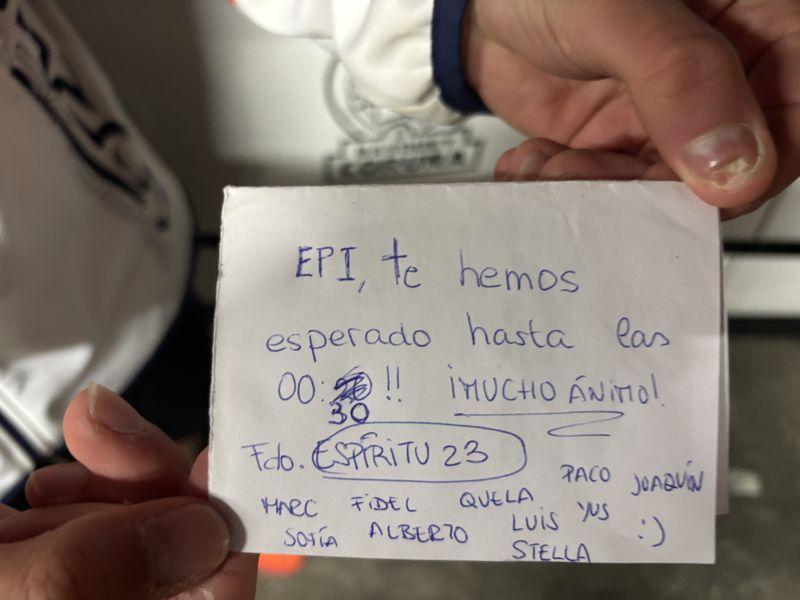 EPI, te hemos
esperado hasta las
00: !! ¡MUCHO ÁNIMO!
30
Fdo. ESPÍRITU 23
PACO JOAQUÍN
MARC FIDEL QUELA
LUIS YUS :)
SOFÍA ALBERTO
STELLA